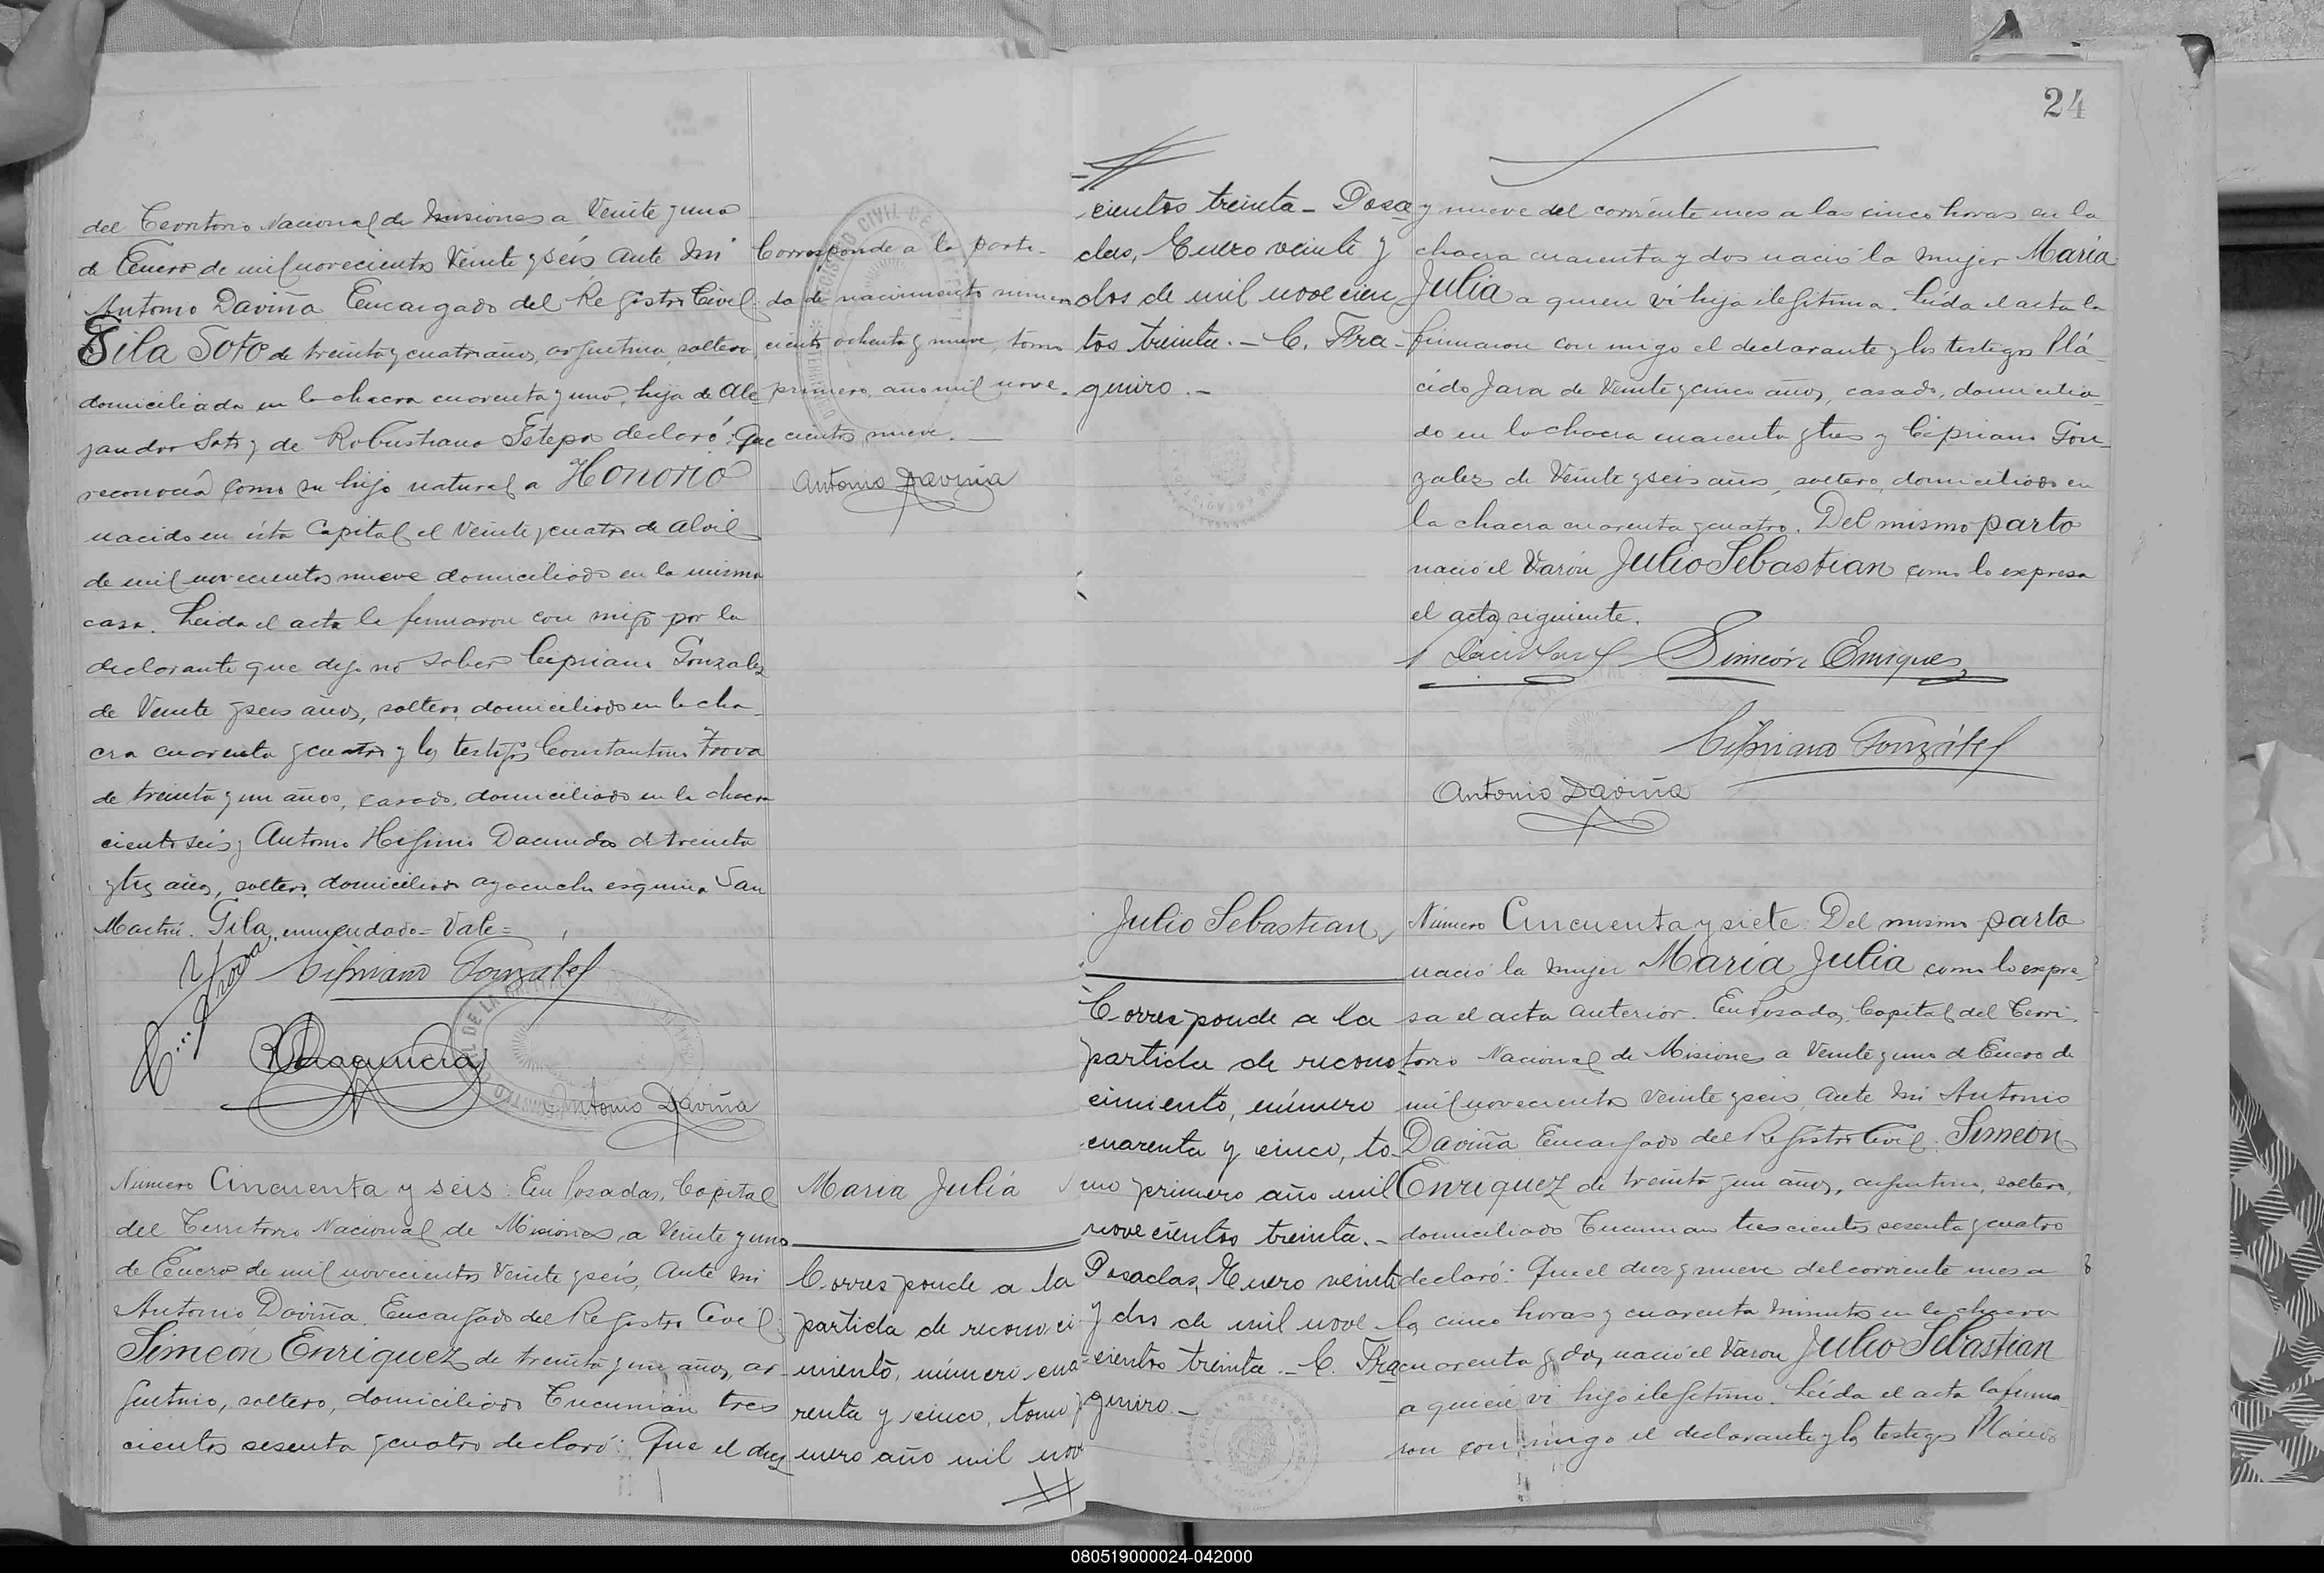 del Territorio Nacional de Misiones a Veinte y uno
de Enero de mil novecientos Veinte y seis Ante Mi
Antonio Daviña Encargado del Registro Civil
Gila Soto de treinta y cuatro años, argentina, soltera,
domiciliada en la chacra cuarenta y uno, hija de Ale
jandro Soto y de Robustiana declaró: Que
reconocía como su hijo natural a Honorio
nacido en ésta Capital el Veinte y cuatro de abril
de mil novecientos nueve domiciliado en la misma
casa. Leida el acta la firmaron con migo por la
declarante que dijo no saber Cipriano Gonzalez
de Veinte y seis años, soltero, domiciliado en la cha
cra cuarenta y cuatro y los testigos Constantino
de treinta y un años, casado, domiciliado en la chacra
ciento seis y Antonio Higinio de treinta
y tres años, soltero, domiciliado ayacucho esquina San
Martin. Gila, enmendado = Vale =
Cipriano González
Antonio Daviña
Corresponde a la parti-
da de nacimiento numero
ciento ochenta y nueve, tomo
primero, año mil nove-
cientos nueve.
Antonio Daviña
Número Cincuenta y seis: En Posadas, Capital
del Territorio Nacional de Misiones, a Veinte y uno
de Enero de mil novecientos Veinte y seis, Ante Mi
Antonio Daviña. Encargado del Registro Civil:
Simeón Enriquez de treinta y un años, ar
gentino, soltero, domiciliado Tucumán tres
cientos sesenta y cuatro declaró: Que el diez
Maria Julia
Corresponde a la
partida de reconoci
miento, número cua
renta y cinco, tomo pri
mero año mil nove
24
cientos treinta - Posa
das, Enero veinte y
dos de mil novecien
tos treinta. - C. Fra-
guiro. -
y nueve del corriente mes a las cinco horas en la
chacra cuarenta y dos nació la mujer María
Julia a quien ví hija ilegitima. Leída el acta la
firmaron con migo el declarante y los testigos Plá
cido Jara de Veinte y cinco años, casado, domicilia
do en la chacra cuarenta y tres y Cipriano Gon
zalez de Veinte y seis años, soltero, domiciliado en
la chacra cuarenta y cuatro. Del mismo parto
nació el Varón Julio Sebastian como lo expresa
el acta siguiente.
Simeón Enriquez
Cipriano González
Antonio Daviña
Julio Sebastian
Corresponde a la
partida de recono
cimiento, número
cuarenta y cinco, to
mo primero año mil
novecientos treinta. -
Posadas, Enero veinte
y dos de mil nove
cientos treinta. - C. Fra
guiro. -
Número Cincuenta y siete: Del mismo parto
nació la mujer María Julia como lo expre
sa el acta anterior. En Posadas, Capital del Terri
torio Nacional de Misiones a Veinte y uno de Enero de
mil novecientos Veinte y seis, Ante Mi Antonio
Daviña Encargado del Registro Civil: Simeón
Enriquez de treinta y un años, argentino, soltero,
domiciliado Tucuman tres cientos sesenta y cuatro
declaró: Que el diez y nueve del corriente mes a
las cinco horas y cuarenta minutos en la chacra
cuarenta y dos, nació el Varon Julio Sebastian
a quien vi hijo ilegitimo. Leída el acta la firma
ron con migo el declarante y los testigos Plácido
080519000024-042000